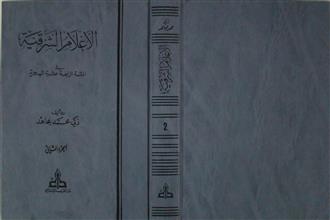 الأعلام الشرقية
في
المائة الرابعة عشرة الهجرية
تأليف
زكي محمد مجاهد
الجزء الثاني
الأعلام الشرقية
2